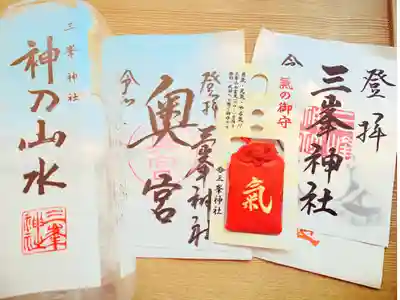 三峯神社
神乃山水
三峯
神社
登拝三峯神社
奥宮
氣の御守
氣
三峯神社
登拝
三峯神社